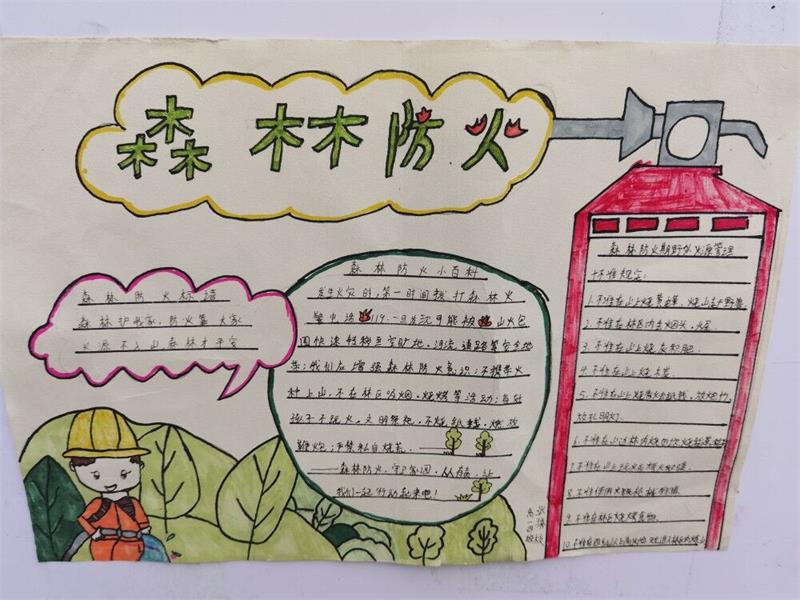 森林防火
森林防火标语
森林护我家，防火靠大家
火源不入山森林才平安
森林防火小百科
发生火灾时，第一时间拨打森林火
警电话119.一旦发现可能被山火包
围快速转移至空旷地、河流、道路等安全地
带；我们应增强森林防火意识；不携带火
种上山，不在林区吸烟、烧烤等活动；自
孩子不玩火，文明祭祀，不烧纸钱、燃放
鞭炮；严禁私自烧荒.
——森林防火，守卫家园，从自，让
我们一起行动起来吧！
森林防火期野外火源管理
十不准规定：
1.不准在山上烧黄蜂，烧山赶野兽
2.不准在林区内丢烟头、火柴
3.不准在山上烧灰积肥.
4.不准在山上烧木炭.
5.不准在山上烧香火纸钱，放烟竹，
放孔明灯.
6.不准在山边林
7.不准在山上玩火取暖.
8.不准使用火把
9.不准在林区烧烤食物.
10.不准在四级以上
高一四班